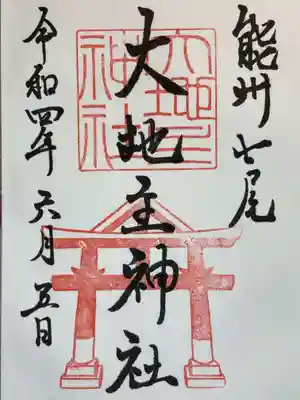 能州七尾
大地主神社
大地主神社
令和四年六月五日